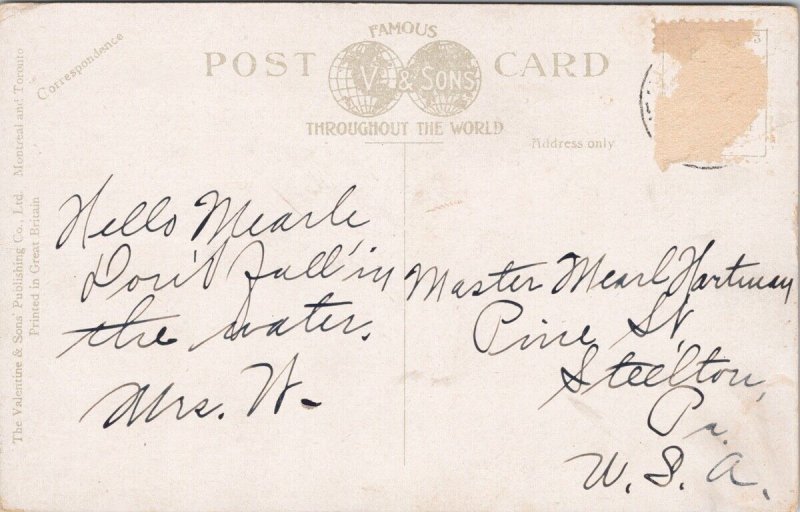 Correspondence
FAMOUS
POST CARD
V. & SONS
THROUGHOUT THE WORLD
Address only
The Valentine & Sons' Publishing Co., Ltd. Montreal and Toronto
Printed in Great Britain
Hello Mearle
Don't fall in
the water.
Mrs. W-
Master Mearl Hartman
Pine St
Steelton,
Pa.
U.S.A.